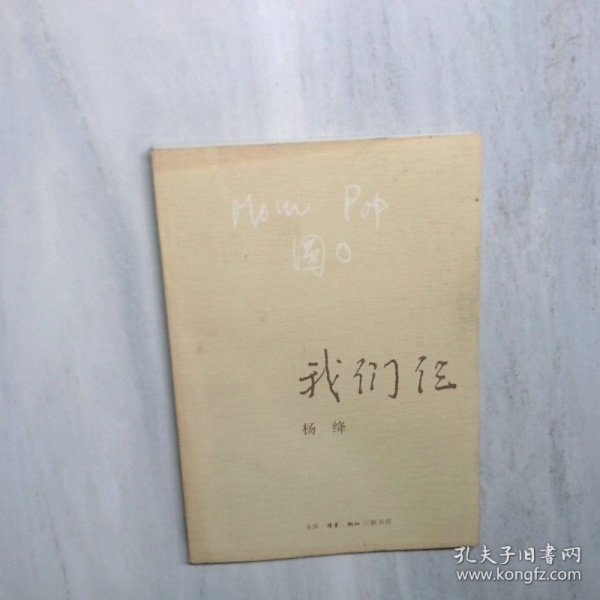 Mom Pop
圆〇
我们仨
杨 绛
生活·读书·新知 三联书店
孔夫子旧书网
www.kongfz.com